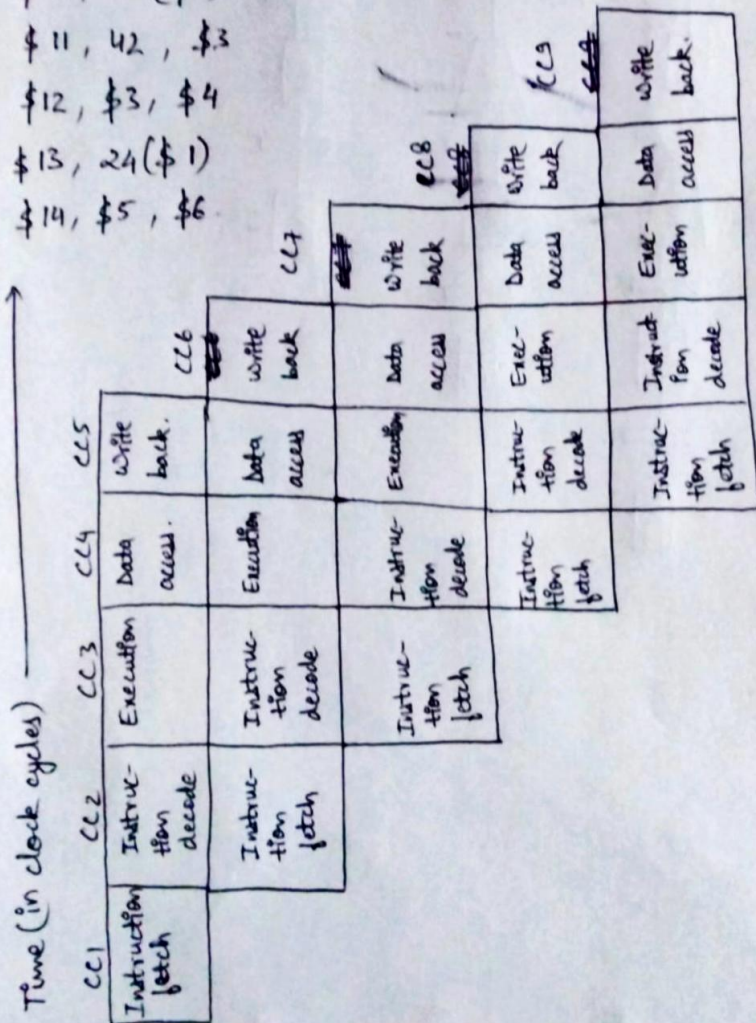 $11, $2, $3
$12, $3, $4
$13, 24($1)
$14, $5, $6
Time (in clock cycles)
CC1 CC2 CC3 CC4 CC5 CC6 CC7 CC8 CC9
Instruction fetch Instruc-tion decode Execution Data access. Write back.
Instruc-tion fetch Instruc-tion decode Execution Data access Write back
Instruc-tion fetch Instruc-tion decode Execution Data access Write back
Instruc-tion fetch Instruc-tion decode Exec-ution Data access Write back
Instruc-tion fetch Instruct ion decode Exec-ution Data access Write back.